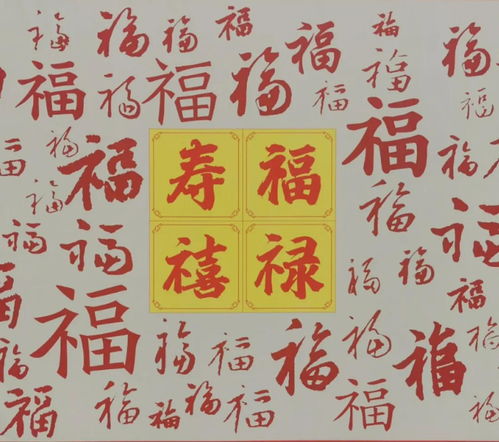 福 福 福 福 福 福 福
福 福 福 福 福 福 福
福 福 福 寿 福 福 福
福 福 福 福 福
福 禧 禄 福 福 福
福 福 福 福 福 福 福
福 福 福 福 福 福 福 福